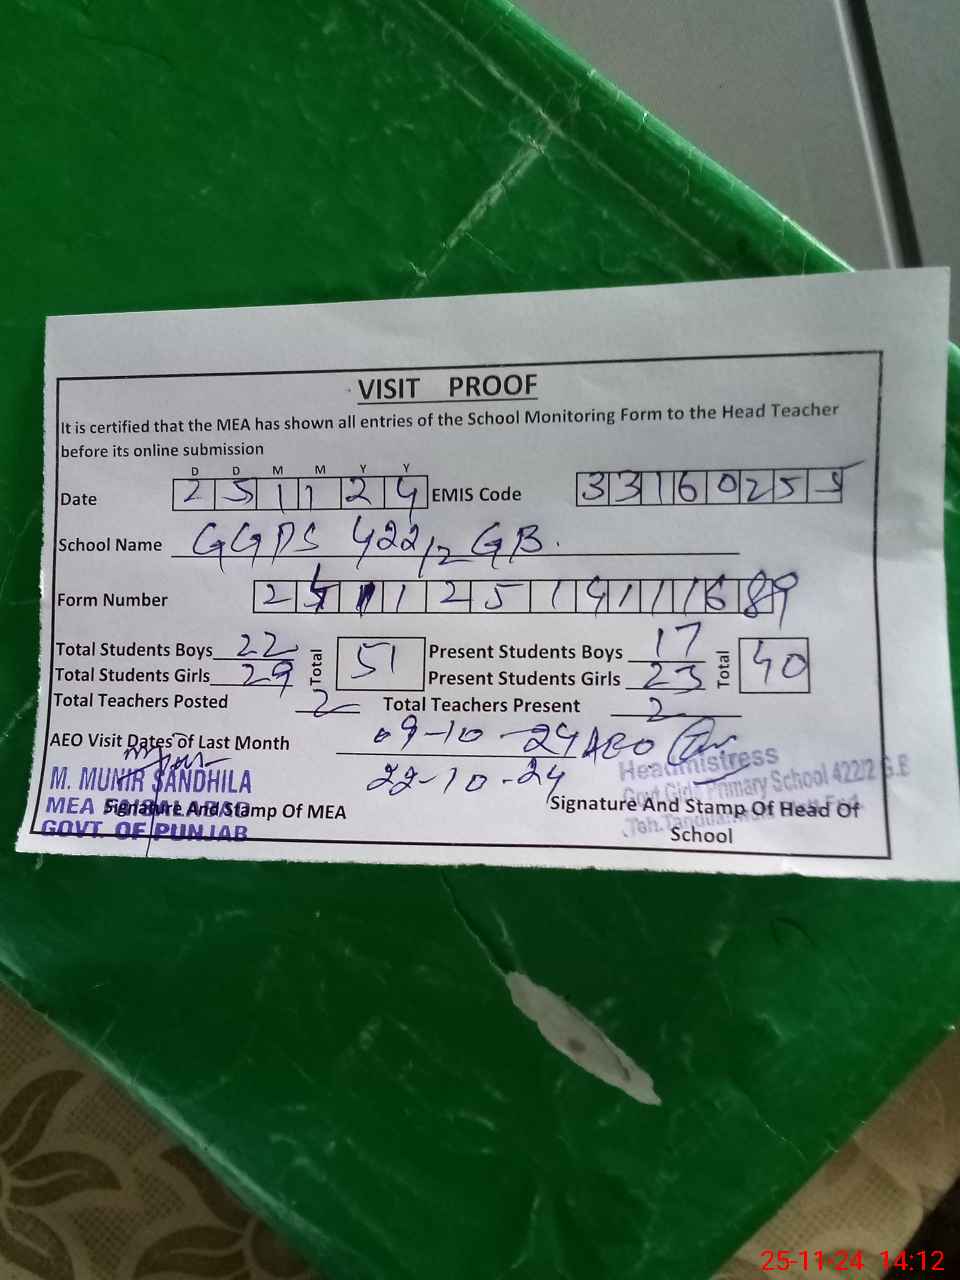 VISIT PROOF
It is certified that the MEA has shown all entries of the School Monitoring Form to the Head Teacher
before its online submission
D D M M Y Y
Date 2 5 1 1 2 4 EMIS Code 3 3 1 6 0 2 5 5
School Name GGPS 422/2 GB.
Form Number
Total Students Boys 22 Total 51 Present Students Boys 17 Total 40
Total Students Girls 29 Present Students Girls 23
Total Teachers Posted 2 Total Teachers Present 2
AEO Visit Dates of Last Month 09-10-24 AEO
22-10-24
M. MUNIR SANDHILA
MEA FAISALABAD
GOVT. OF PUNJAB
Signature And Stamp Of MEA
Headmistress
Govt Girls Primary School 422/2 G.B
Signature And Stamp Of Head Of
School
25-11-24 14:12